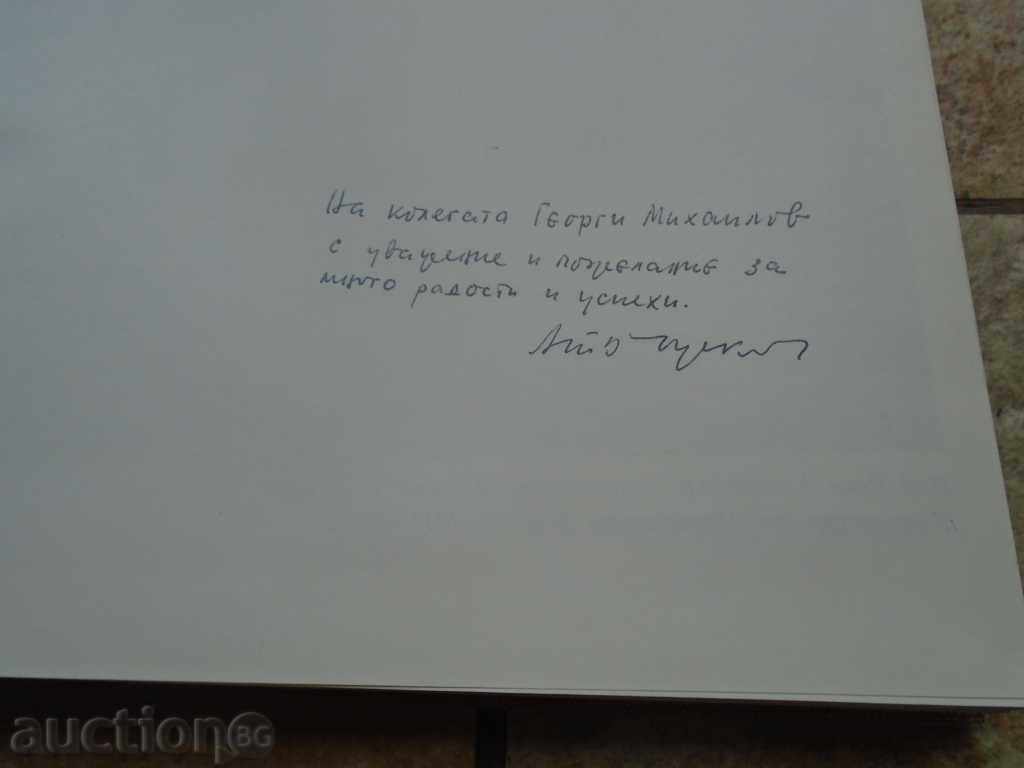 На колегата Георги Михаилов
с уважение и пожелание за
много радости и успехи.
auctionBG